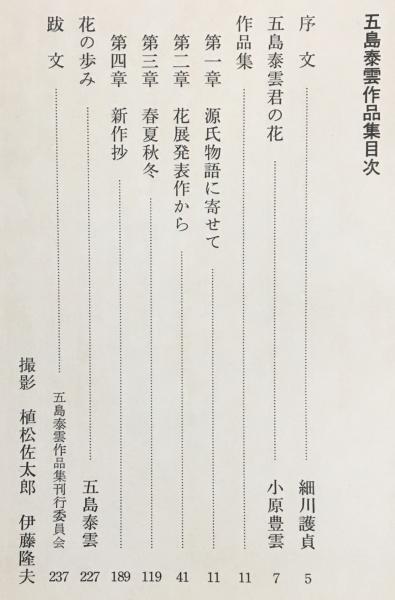 五島泰雲作品集目次
序文 細川護貞 5
五島泰雲君の花 小原豊雲 7
作品集 11
第一章 源氏物語に寄せて 11
第二章 花展発表作から 41
第三章 春夏秋冬 119
第四章 新作抄 189
花の歩み 五島泰雲 227
跋文 五島泰雲作品集刊行委員会 237
撮影 植松佐太郎 伊藤隆夫